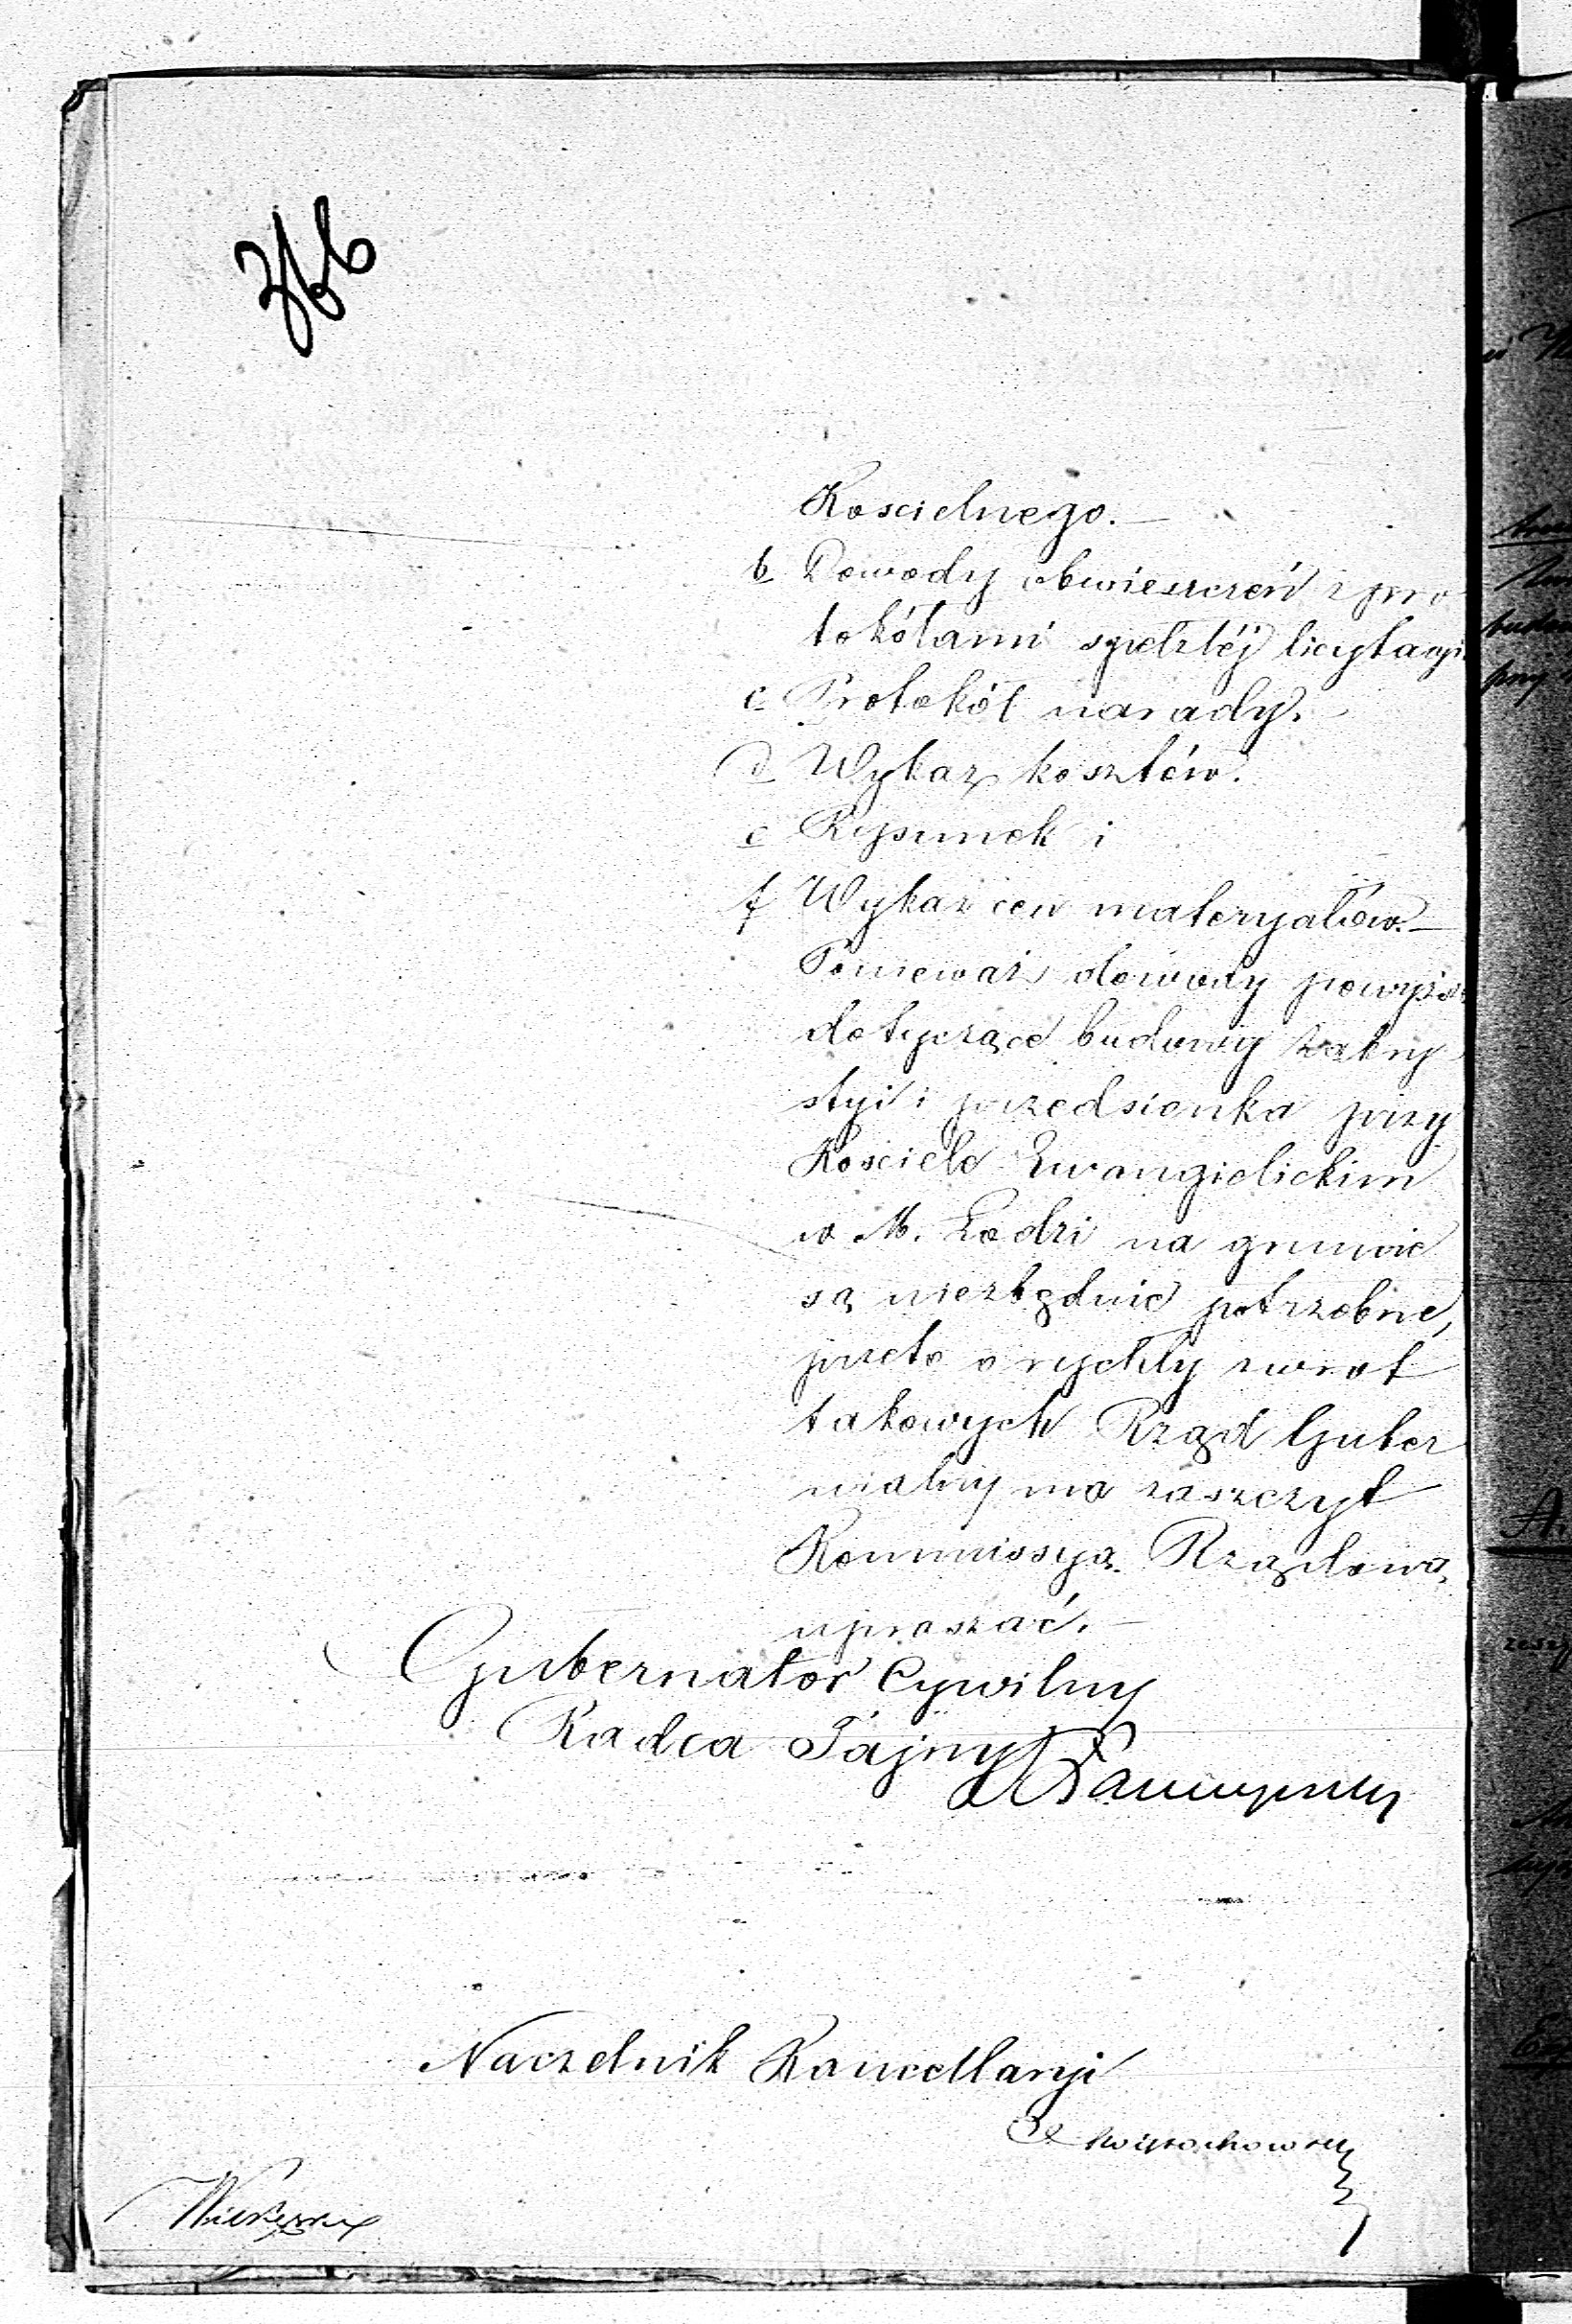 366
Koscielnego. —
b Dowody obwieszczeń z pro
tokółami spełztéj licytacyi
c Protokół narady.
d Wykaz kosztów.
e Rysunek i
f Wykaz cen materyałów. —
Ponieważ dowody powyższe
dotyczące budowy Zakry
styi i przedsionka przy
Kosciele Ewangielickim
w M. Łodzi na gruncie
są niezbędnie potrzebne,
przeto o rychły zwrot
takowych Rząd Guber
nialny ma zaszczyt
Kommissyą Rządową
upraszać. —
Gubernator Cywilny
Radca Tajny
Naczelnik Kancellaryi